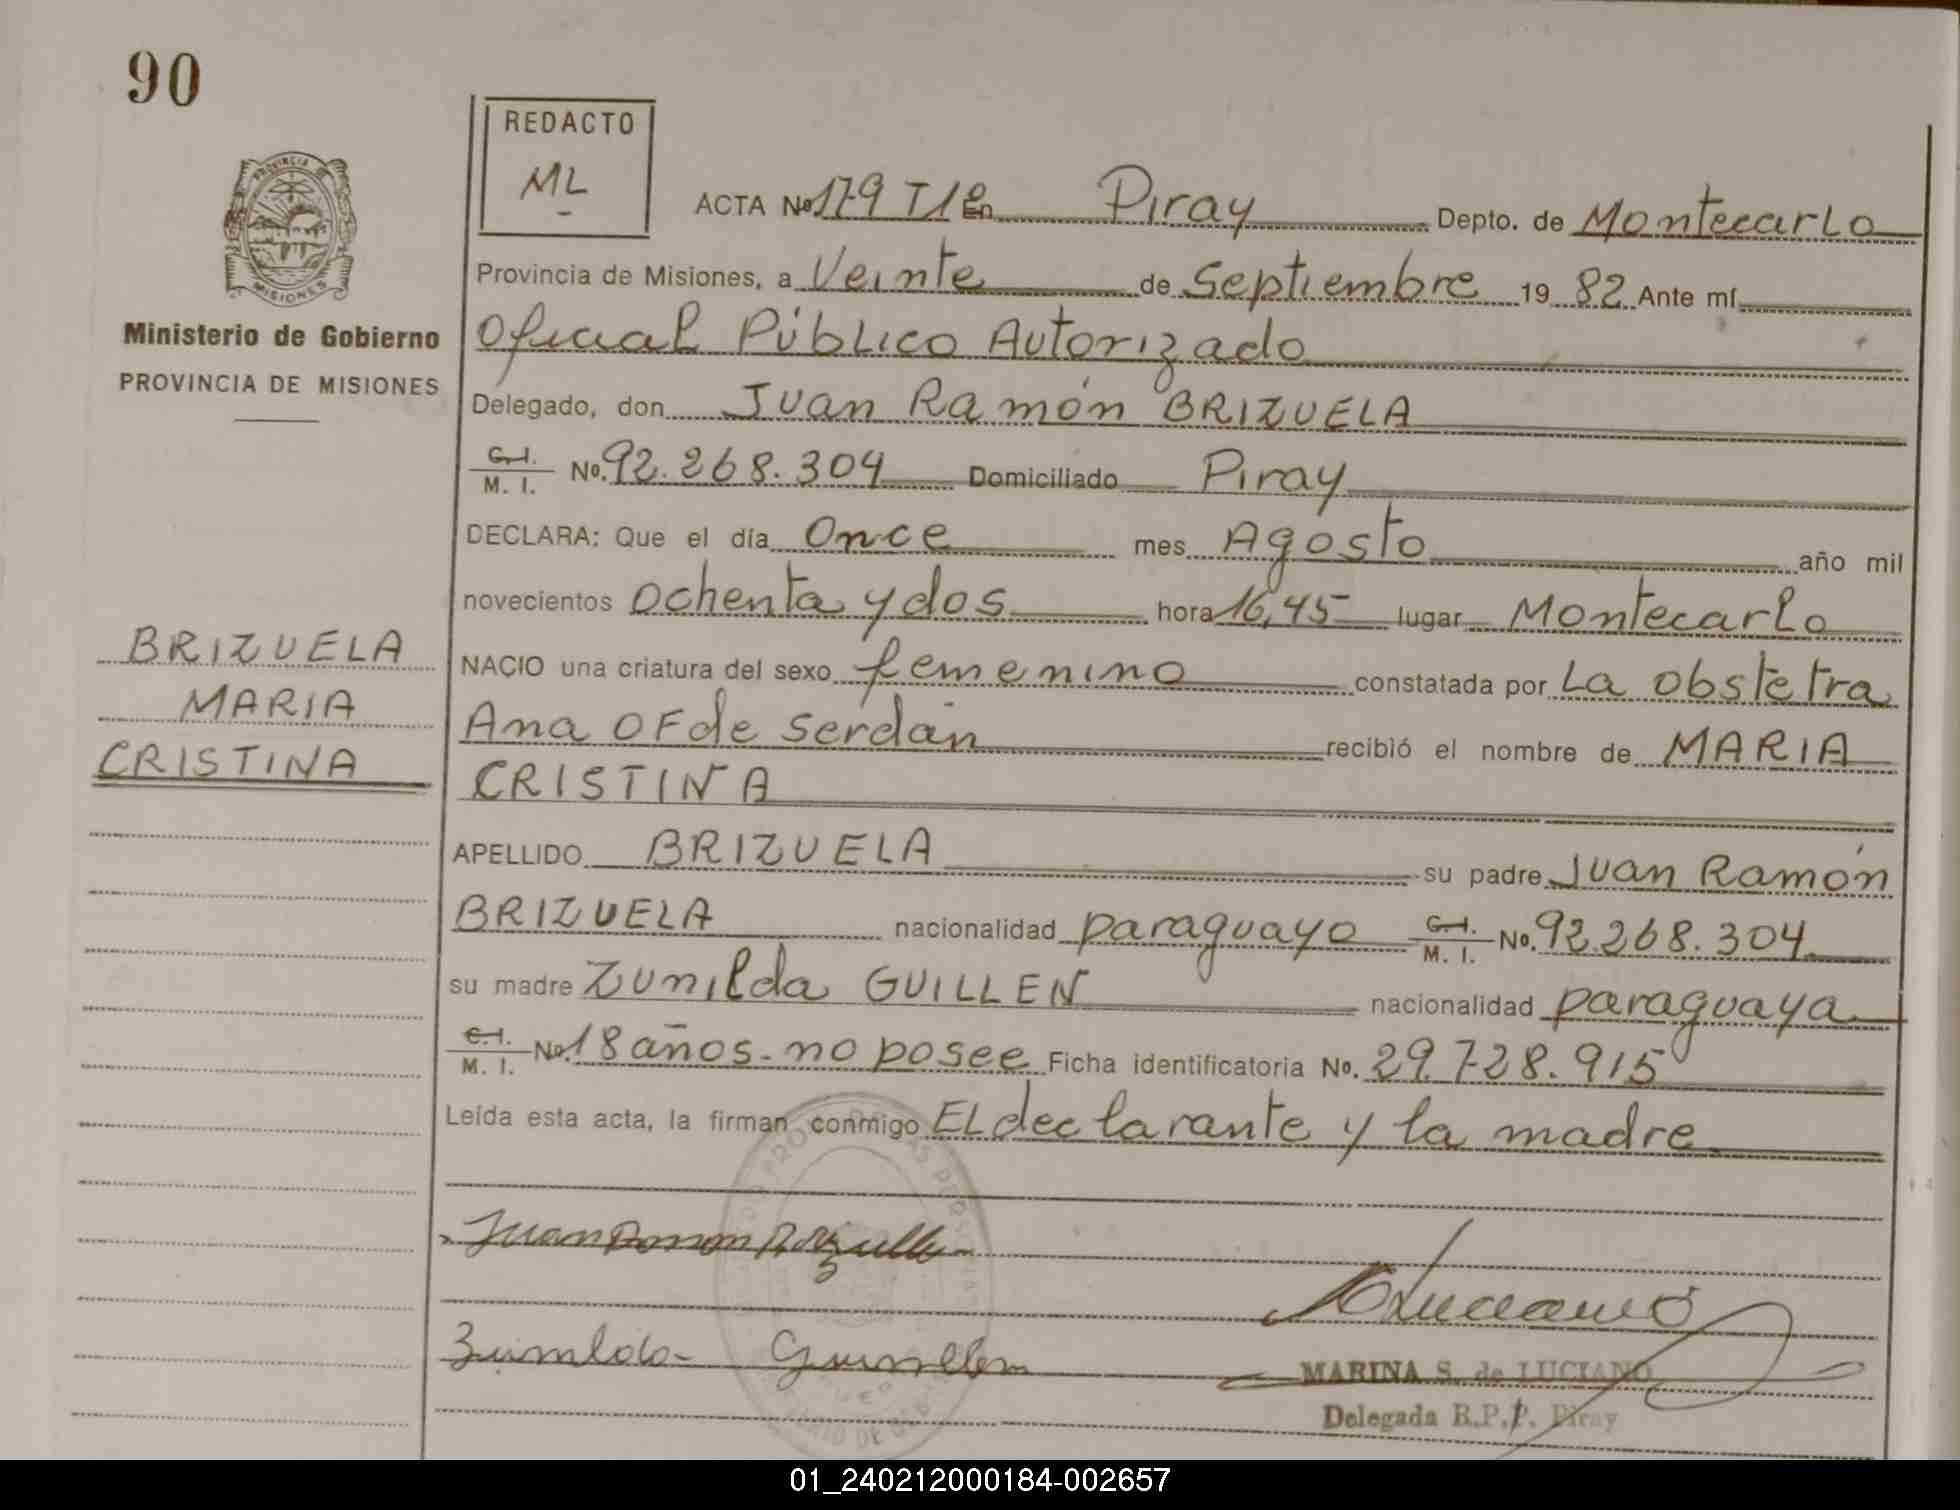 90
REDACTO
ML
ACTA No 179 T1º En Piray Depto. de Montecarlo
PROVINCIA DE
MISIONES
Ministerio de Gobierno
PROVINCIA DE MISIONES
Provincia de Misiones, a Veinte de Septiembre 19 82 Ante mí
Oficial Público Autorizado
Delegado, don Juan Ramón BRIZUELA
C. I. M. I. No. 92.268.304 Domiciliado Piray
DECLARA: Que el día Once mes Agosto año mil
novecientos Ochenta y dos hora 16,45 lugar Montecarlo
BRIZUELA
MARIA
CRISTINA
NACIO una criatura del sexo femenino constatada por La obstetra
Ana OF de Serdán recibió el nombre de MARIA
CRISTINA
APELLIDO BRIZUELA su padre Juan Ramón
BRIZUELA nacionalidad paraguayo C. I. M. I. No. 92.268.304
su madre Zunilda GUILLEN nacionalidad paraguaya
C. I. M. I. No. 18 años - no posee Ficha identificatoria No. 29.728.915
Leída esta acta, la firman conmigo El declarante y la madre
Juan Ramon Brizuela
Luciano
Zunilda Guillen
MARINA S. de LUCIANO
Delegada R.P.P. Piray
01_240212000184-002657